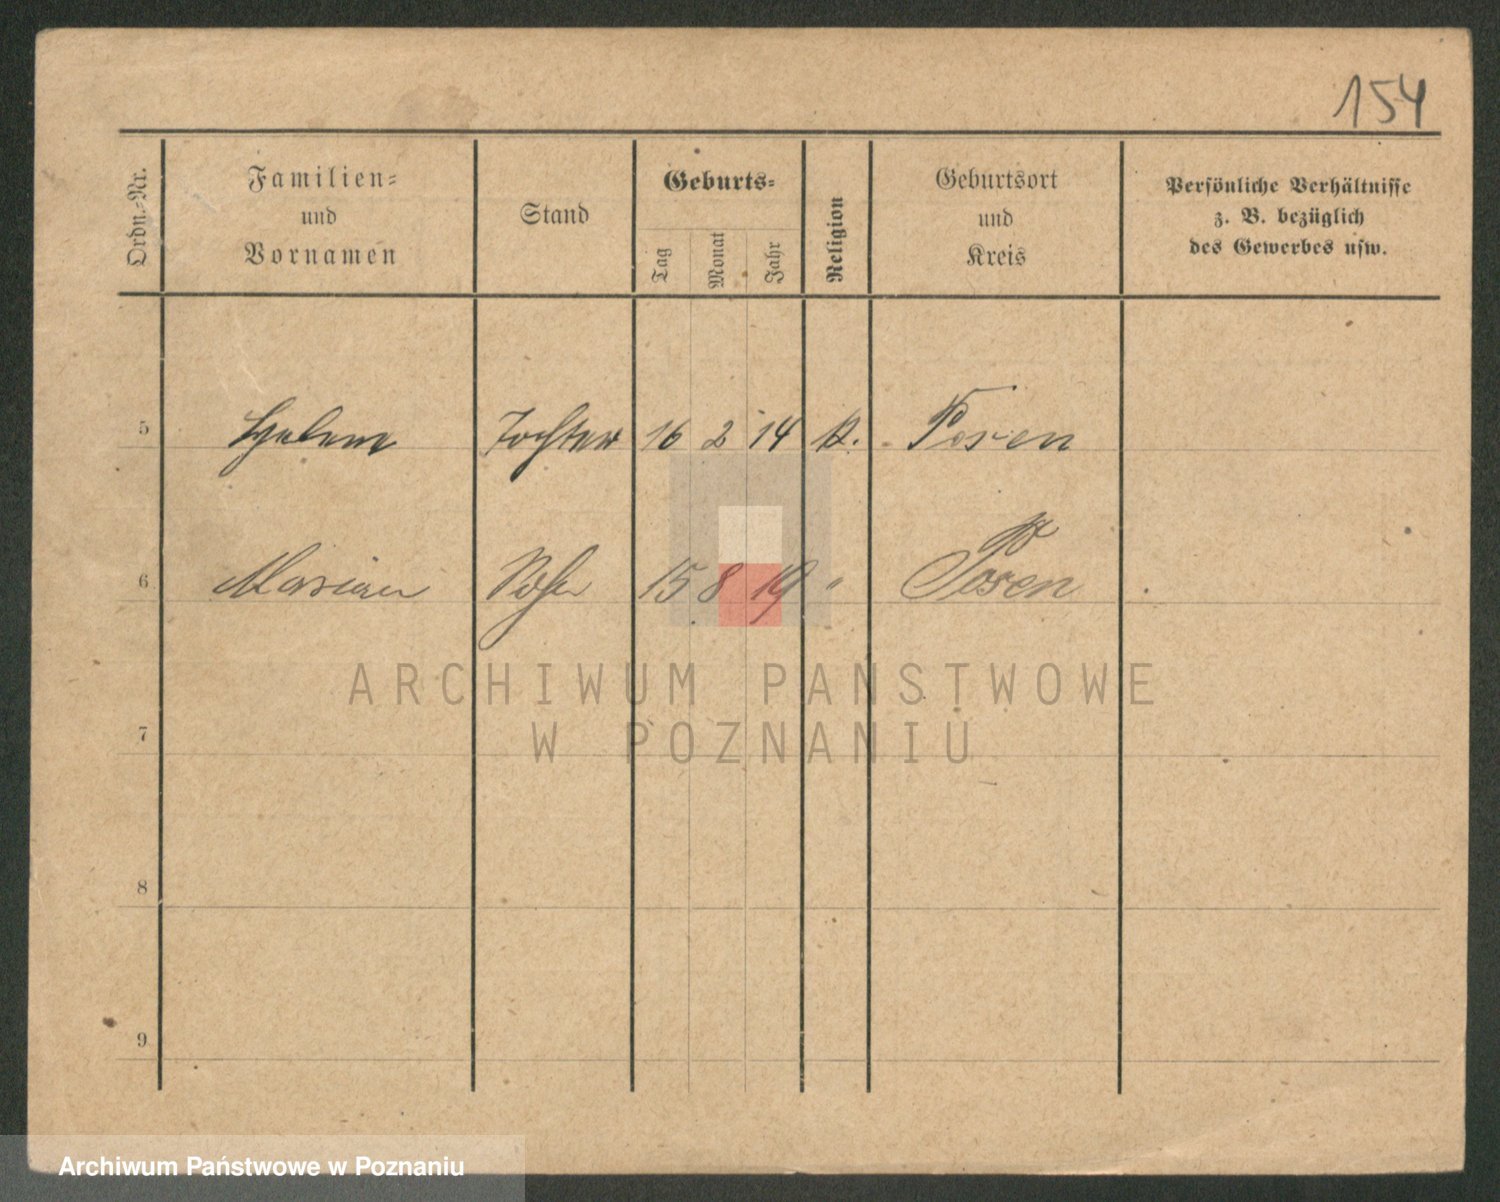 154
Ordn.-Nr.
Familien-
und
Vornamen
Stand
Geburts-
Tag
Monat
Jahr
Religion
Geburtsort
und
Kreis
Persönliche Verhältnisse
z. B. bezüglich
des Gewerbes usw.
5 Helene Tochter 16 2 14 k. Posen
6 Marian Sohn 15 8 19 " Posen
7
8
9
ARCHIWUM PAŃSTWOWE
W POZNANIU
Archiwum Państwowe w Poznaniu